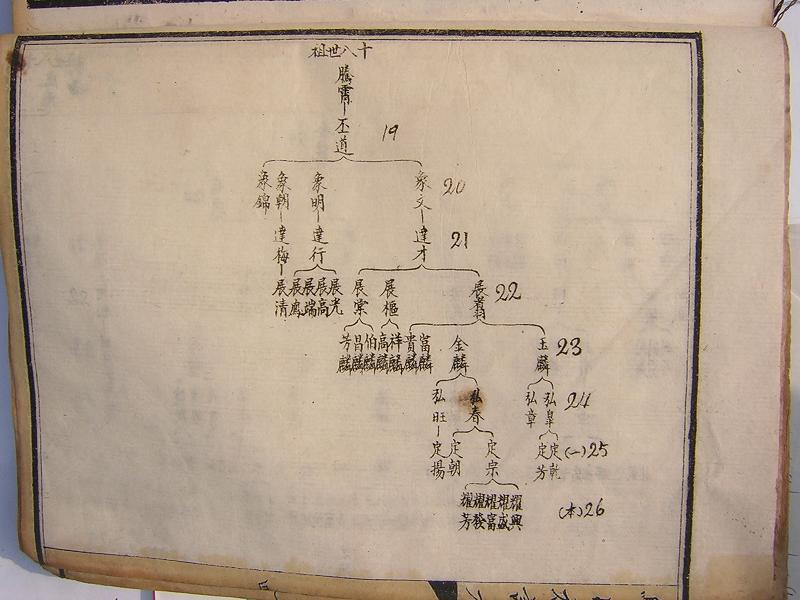 十八世祖
騰霄
丕道
19
象文
象明
象朝
象錦
20
達才
達行
達梅
21
展翥
展樞
展棠
展光
展高
展端
展鳳
展清
22
玉麟
金麟
富麟
貴麟
祥麟
高麟
伯麟
昌麟
芳麟
23
弘皐
弘章
弘春
弘旺
24
定乾
定芳
定宗
定朝
定揚
(一)25
耀興
耀盛
耀富
耀發
耀芳
(本)26